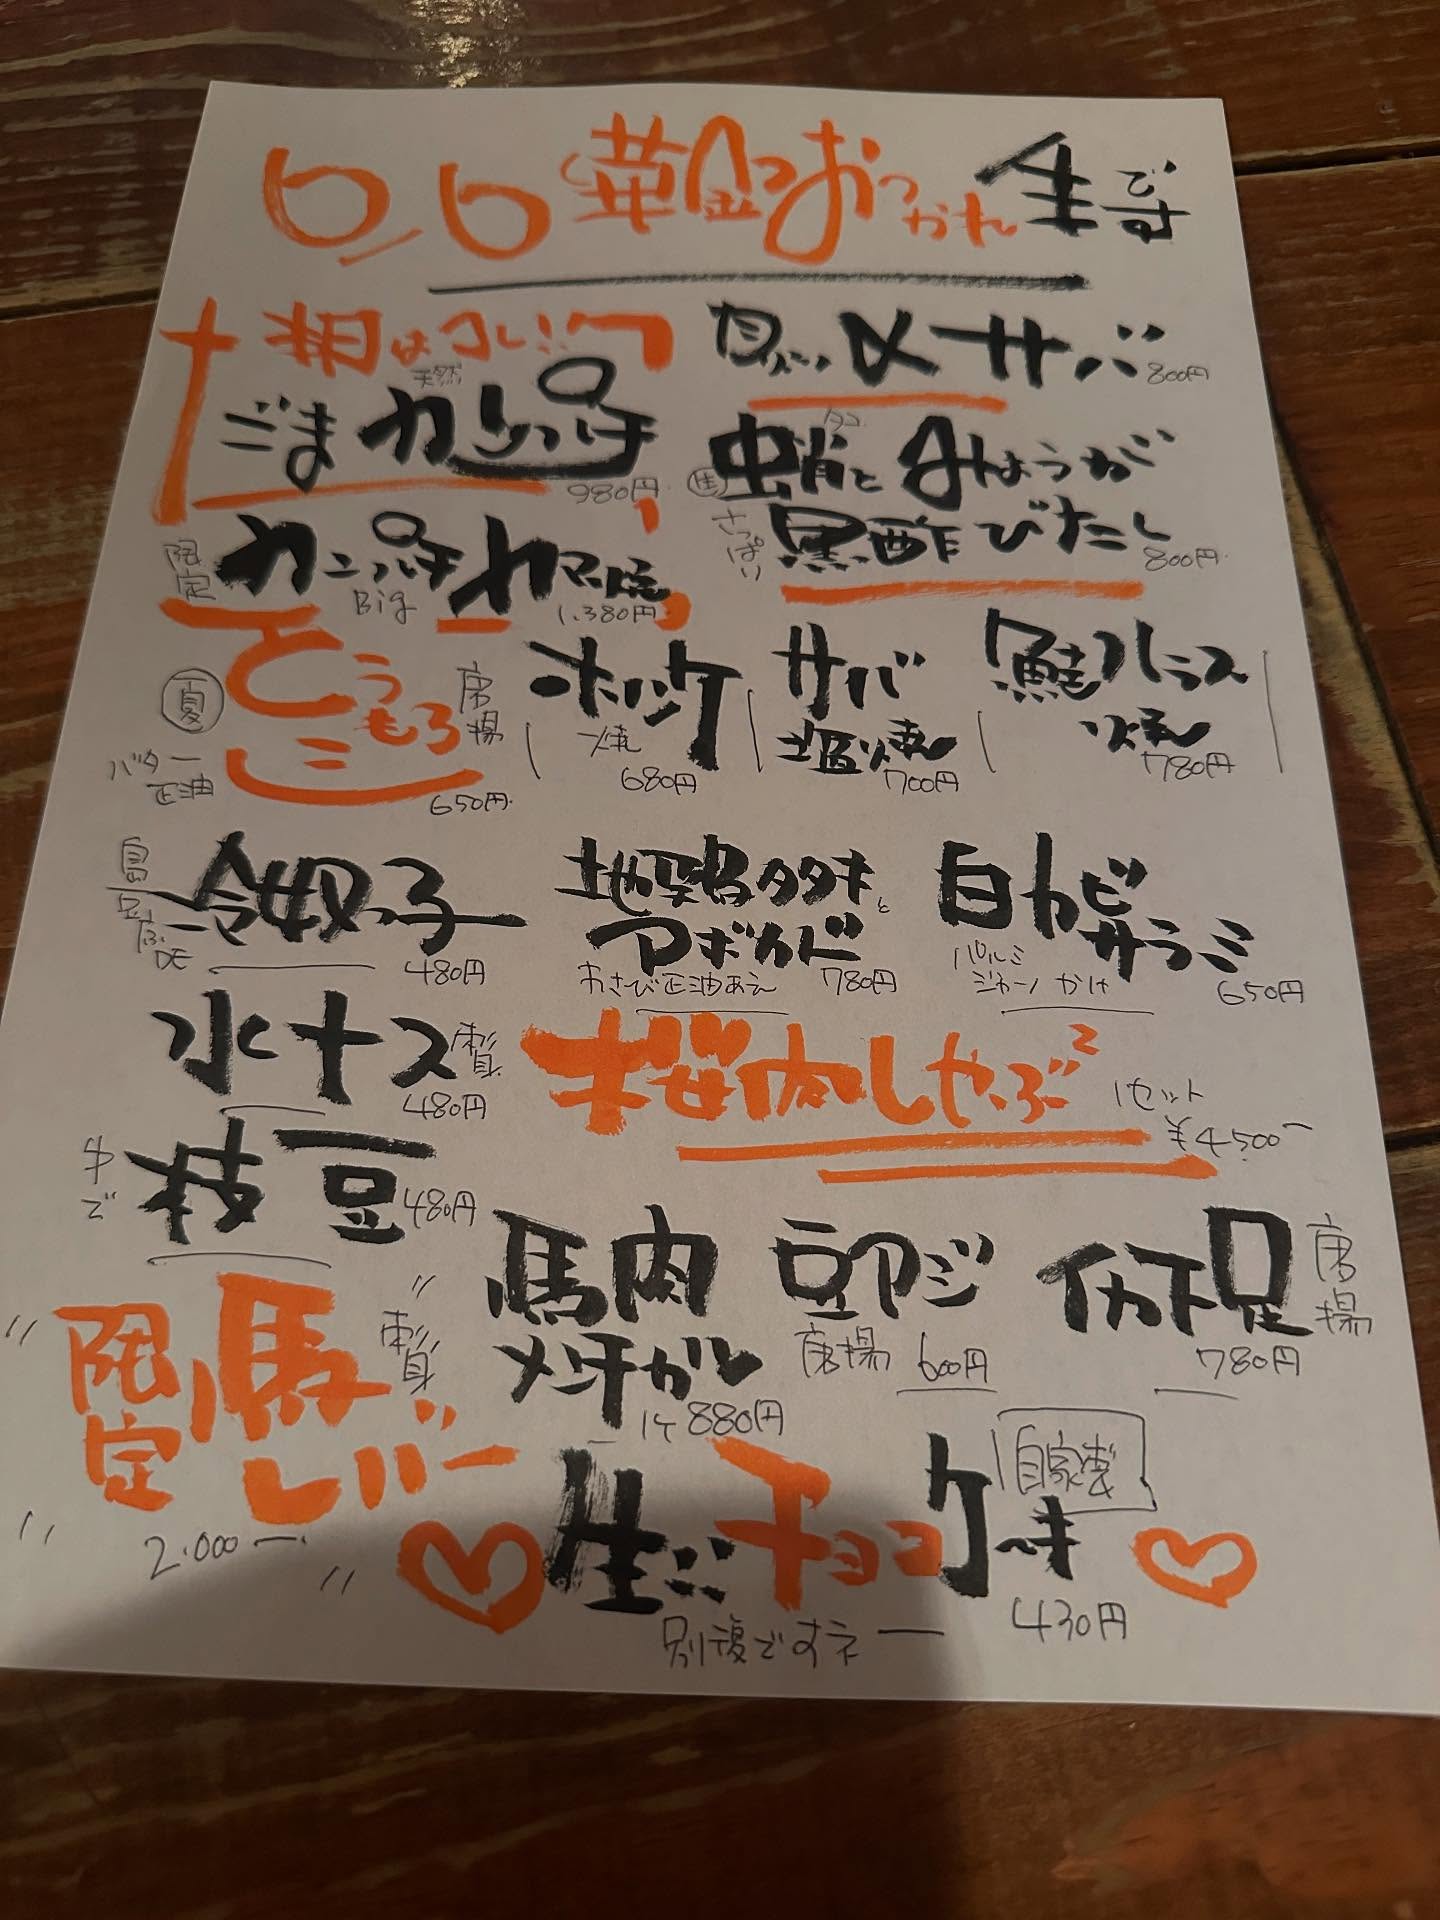 華金おつかれ生です
相はコレ!!
天然
ごまカンパチ
980円
限定
カンパチカマ焼
Big
1,380円
自家〆サバ
800円
タコ
蛸とみょうが
黒酢びたし
さっぱい
800円
夏
とうもろこし
バター正油
650円
ホッケ
焼
680円
サバ
塩焼
700円
鮭ハラス
焼
780円
島豆ふDE
冷奴子
480円
地鶏タタキと
アボカド
わさび正油あえ
780円
白カビ
サラミ
パルミ
ジャーノかけ
650円
水ナス
刺身
480円
桜肉しゃぶ2
1セット
¥4,500ー
枝豆
480円
限定
馬レバー
刺身
2.000ー
馬肉
メンチカツ
1ケ 880円
豆アジ
唐揚
600円
イカ下足
唐揚
780円
生チョコケーキ
自家製
430円
別腹ですネー